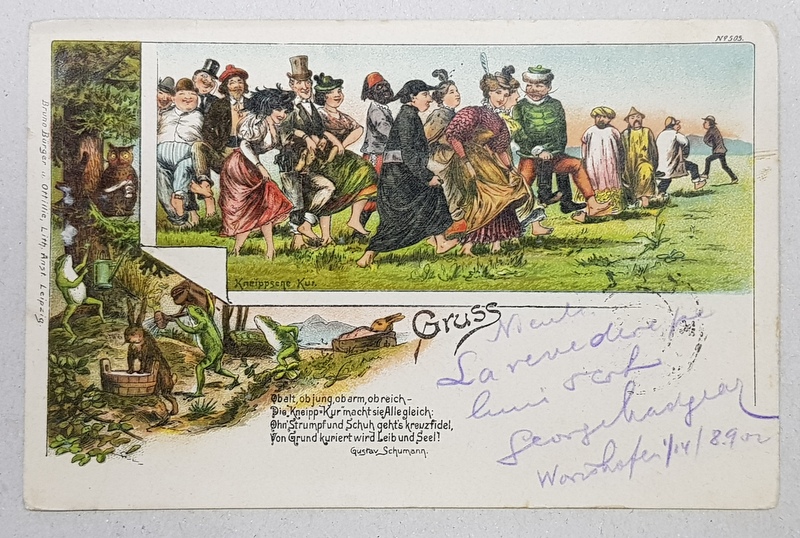 Nº 503.
Bruno Bürger u. Ottillie, Lith. Anst. Leipzig
Kneippsche Kur.
Gruss
Ob alt, ob jung, ob arm, ob reich –
Die Kneipp-Kur macht sie Alle gleich;
Ohn' Strumpf und Schuh geht's kreuzfidel,
Von Grund kuriert wird Leib und Seel!
Gustav Schumann.
La revedere pe
George